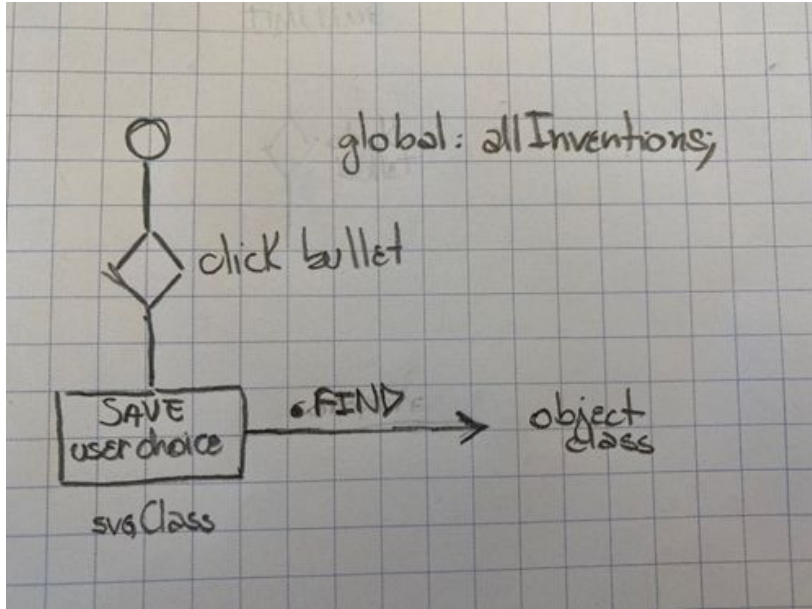 global: allInventions;
click bullet
SAVE
user choice
.FIND
object
class
svgClass